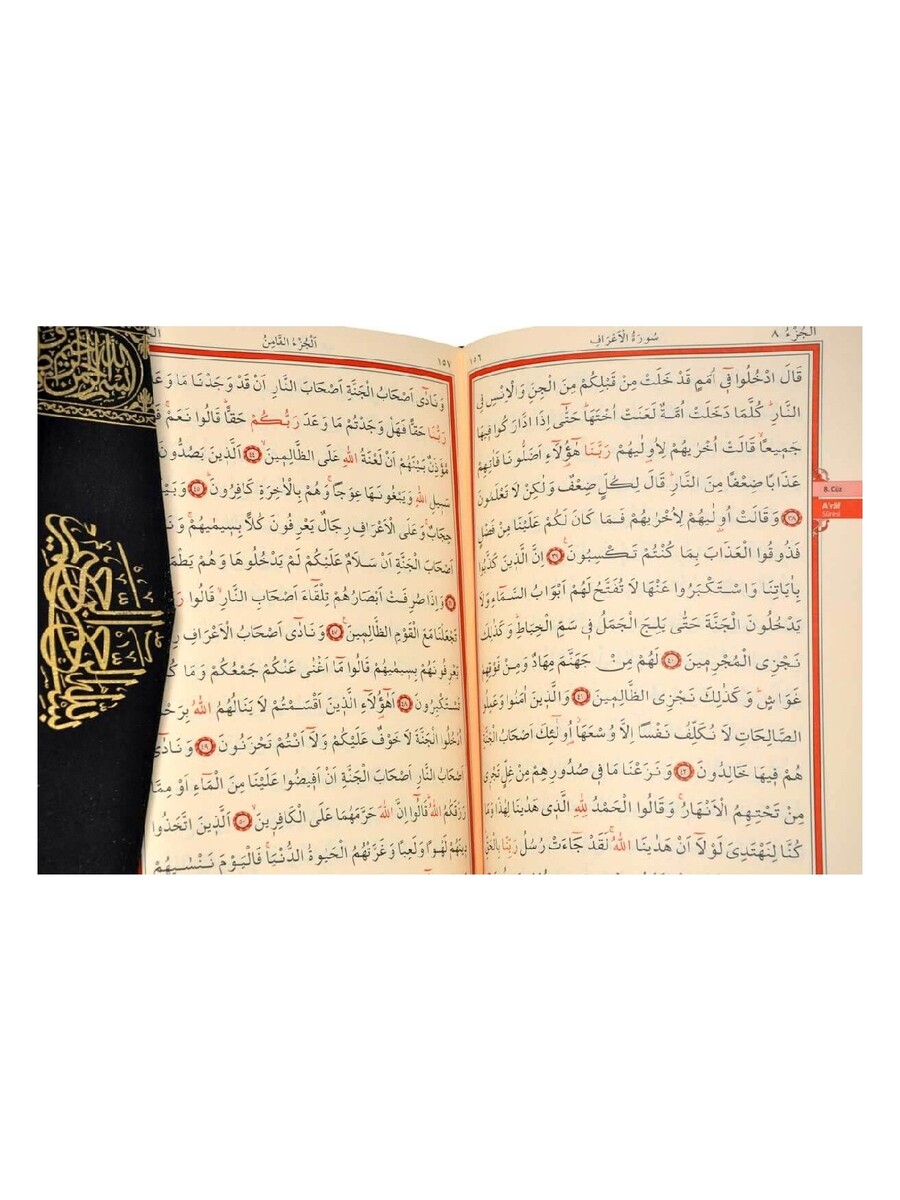 الجزء ٨
سورة الاعراف
١٥٦
قَالَ ادْخُلُوا فٖٓي اُمَمٍ قَدْ خَلَتْ مِنْ قَبْلِكُمْ مِنَ الْجِنِّ وَالْاِنْسِ فِي
النَّارِؕ كُلَّمَا دَخَلَتْ اُمَّةٌ لَعَنَتْ اُخْتَهَاؕ حَتّٰٓى اِذَا ادَّارَكُوا فٖيهَا
جَمٖيعًاۙ قَالَتْ اُخْرٰيهُمْ لِاُولٰيهُمْ رَبَّنَا هٰٓؤُ۬لَٓاءِ اَضَلُّونَا فَاٰتِهِمْ
عَذَابًا ضِعْفًا مِنَ النَّارِؕ قَالَ لِكُلٍّ ضِعْفٌ وَلٰكِنْ لَا تَعْلَمُونَ
﴿٣٨﴾ وَقَالَتْ اُولٰيهُمْ لِاُخْرٰيهُمْ فَمَا كَانَ لَكُمْ عَلَيْنَا مِنْ فَضْلٍ
فَذُوقُوا الْعَذَابَ بِمَا كُنْتُمْ تَكْسِبُونَ ﴿٣٩﴾ اِنَّ الَّذٖينَ كَذَّبُوا
بِاٰيَاتِنَا وَاسْتَكْبَرُوا عَنْهَا لَا تُفَتَّحُ لَهُمْ اَبْوَابُ السَّمَٓاءِ وَلَا
يَدْخُلُونَ الْجَنَّةَ حَتّٰى يَلِجَ الْجَمَلُ فٖي سَمِّ الْخِيَاطِؕ وَكَذٰلِكَ
نَجْزِي الْمُجْرِمٖينَ ﴿٤٠﴾ لَهُمْ مِنْ جَهَنَّمَ مِهَادٌ وَمِنْ فَوْقِهِمْ
غَوَاشٍؕ وَكَذٰلِكَ نَجْزِي الظَّالِمٖينَ ﴿٤١﴾ وَالَّذٖينَ اٰمَنُوا وَعَمِلُوا
الصَّالِحَاتِ لَا نُكَلِّفُ نَفْسًا اِلَّا وُسْعَهَاؗ اُو۬لٰٓئِكَ اَصْحَابُ الْجَنَّةِۚ
هُمْ فٖيهَا خَالِدُونَ ﴿٤٢﴾ وَنَزَعْنَا مَا فٖي صُدُورِهِمْ مِنْ غِلٍّ تَجْرٖي
مِنْ تَحْتِهِمُ الْاَنْهَارُۚ وَقَالُوا الْحَمْدُ لِلّٰهِ الَّذٖي هَدٰينَا لِهٰذَا وَمَا
كُنَّا لِنَهْتَدِيَ لَوْلَٓا اَنْ هَدٰينَا اللّٰهُۚ لَقَدْ جَٓاءَتْ رُسُلُ رَبِّنَا بِالْحَقِّؕ
8. Cüz
A'râf
Sûresi
اَلْجُزْءُ الثَّامِنُ
١٥٧
وَنَادٰٓى اَصْحَابُ الْجَنَّةِ اَصْحَابَ النَّارِ اَنْ قَدْ وَجَدْنَا مَا وَعَدَ
رَبُّنَا حَقًّا فَهَلْ وَجَدْتُمْ مَا وَعَدَ رَبُّكُمْ حَقًّاؕ قَالُوا نَعَمْۚ
مُؤَذِّنٌ بَيْنَهُمْ اَنْ لَعْنَةُ اللّٰهِ عَلَى الظَّالِمٖينَۙ ﴿٤٤﴾ اَلَّذٖينَ يَصُدُّونَ
سَبٖيلِ اللّٰهِ وَيَبْغُونَهَا عِوَجًاۚ وَهُمْ بِالْاٰخِرَةِ كَافِرُونَؕ ﴿٤٥﴾ وَبَيْنَ
حِجَابٌۚ وَعَلَى الْاَعْرَافِ رِجَالٌ يَعْرِفُونَ كُلًّا بِسٖيمٰيهُمْۚ وَنَا
اَصْحَابَ الْجَنَّةِ اَنْ سَلَامٌ عَلَيْكُمْ لَمْ يَدْخُلُوهَا وَهُمْ يَطْمَ
وَاِذَا صُرِفَتْ اَبْصَارُهُمْ تِلْقَٓاءَ اَصْحَابِ النَّارِۙ قَالُوا رَ
تَجْعَلْنَا مَعَ الْقَوْمِ الظَّالِمٖينَ ﴿٤٧﴾ وَنَادٰٓى اَصْحَابُ الْاَعْرَافِ رِ
يَعْرِفُونَهُمْ بِسٖيمٰيهُمْ قَالُوا مَٓا اَغْنٰى عَنْكُمْ جَمْعُكُمْ وَمَا كُ
تَسْتَكْبِرُونَ ﴿٤٨﴾ اَهٰٓؤُ۬لَٓاءِ الَّذٖينَ اَقْسَمْتُمْ لَا يَنَالُهُمُ اللّٰهُ بِرَحْ
اُدْخُلُوا الْجَنَّةَ لَا خَوْفٌ عَلَيْكُمْ وَلَٓا اَنْتُمْ تَحْزَنُونَ ﴿٤٩﴾ وَنَادٰٓى
اَصْحَابُ النَّارِ اَصْحَابَ الْجَنَّةِ اَنْ اَفٖيضُوا عَلَيْنَا مِنَ الْمَٓاءِ اَوْ مِمَّا
رَزَقَكُمُ اللّٰهُؕ قَالُٓوا اِنَّ اللّٰهَ حَرَّمَهُمَا عَلَى الْكَافِرٖينَۙ ﴿٥٠﴾ اَلَّذٖينَ اتَّخَذُوا
دٖينَهُمْ لَهْوًا وَلَعِبًا وَغَرَّتْهُمُ الْحَيٰوةُ الدُّنْيَاۚ فَالْيَوْمَ نَنْسٰيهُمْ